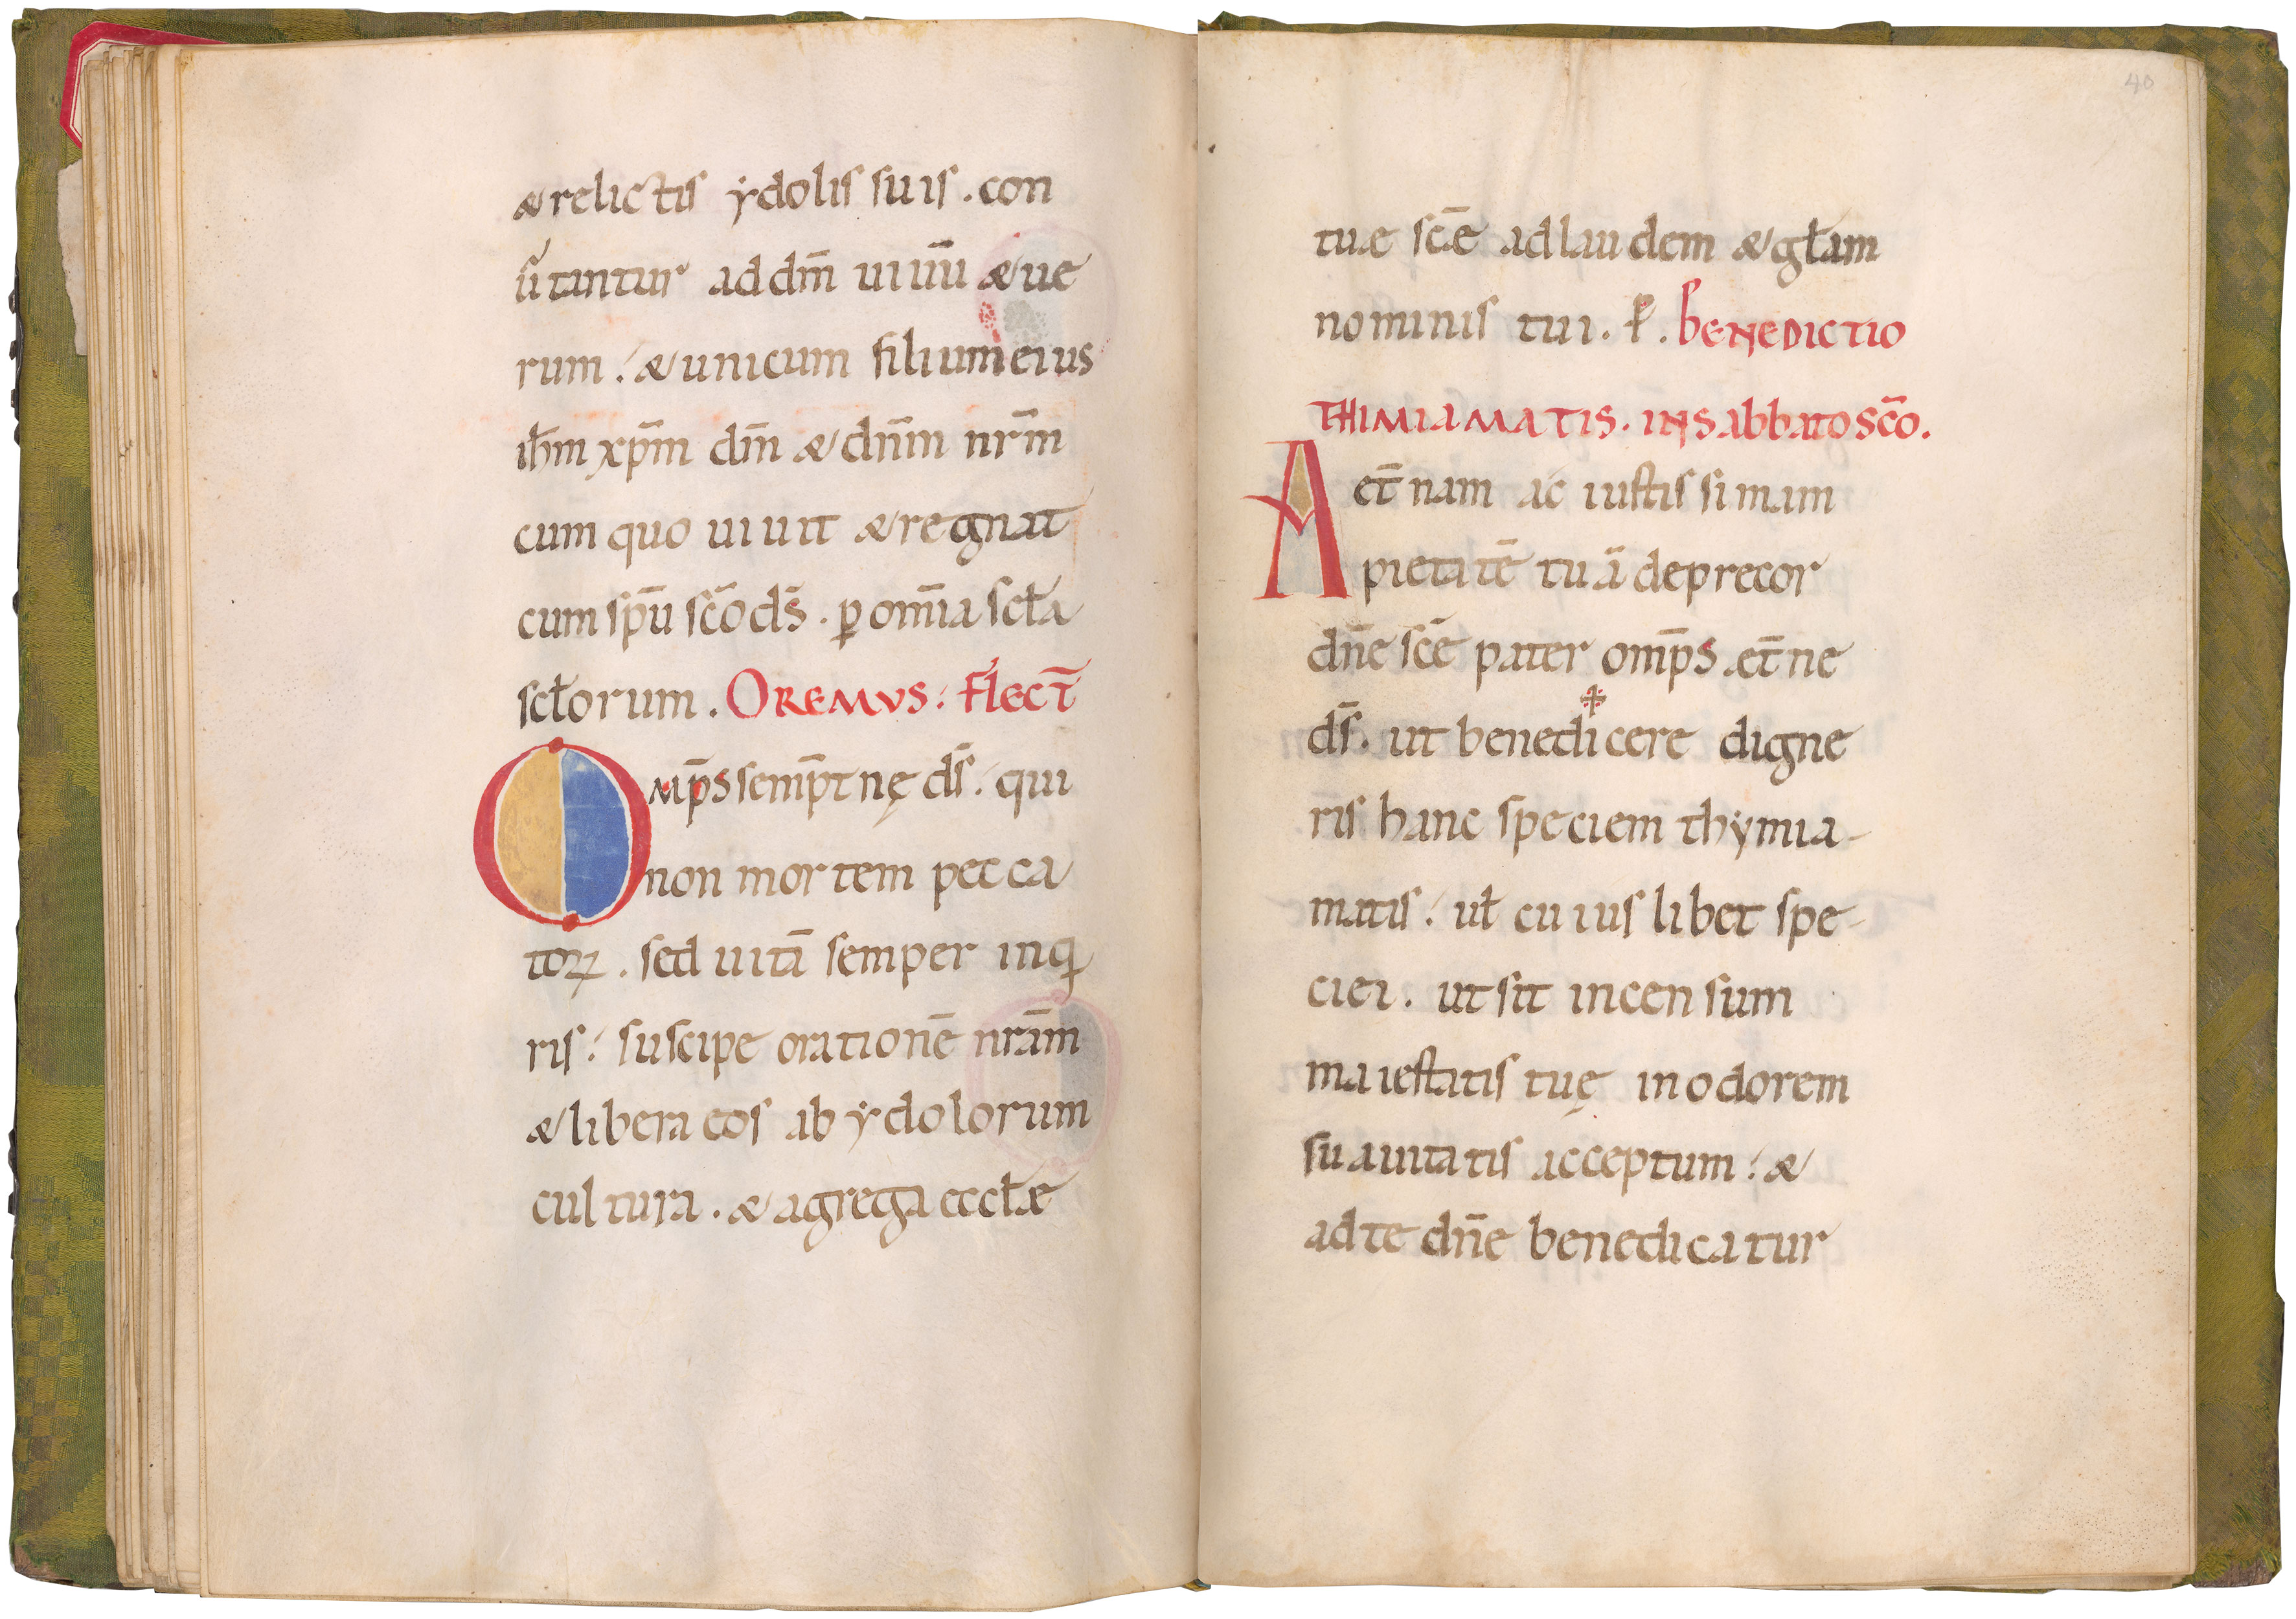 & relictis ẏdolis suis . con
ũtantur ad dm̄ uiuū & ue
rum . & unicum filium eius
ihm̄ xpm̄ dm̄ & dnm̄ nrm̄
cum quo uiuit & regnat
cum spū scō ds̄ . ꝑ omīa scła
scłorum . OREMVS . Flect̄
Omp̄s semp̄tnę ds̄ . qui
non mortem pecca
toꝝ . sed uitā semper inq
ris . suscipe orationē nrām
& libera eos ab ẏdolorum
cultura . & agrega eccłæ
40
tuae scē ad laudem & głam
nominis tui . P̱ . BENEDICTIO
THIMIAMATIS . IN Sabbato Scō .
Aet̄nam ac iustissimam
pietatē tuā deprecor
dn̄e scē pater omp̄s . et̄ne
ds̄ . ut benedi✝cere digne
ris hanc speciem thẏmia-
matis . uł cuiuslibet spe-
ciei . ut sit incensum
maiestatis tuę in odorem
suauitatis acceptum . &
ad te dn̄e benedicatur